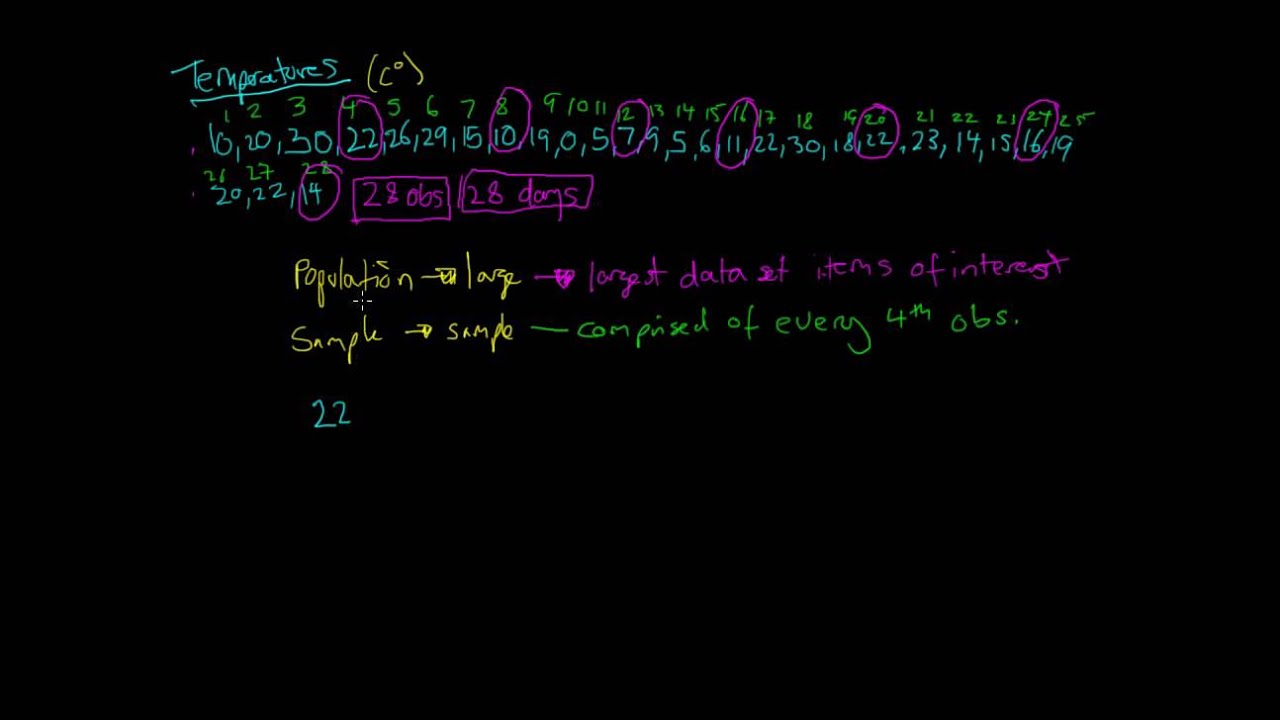 Temperatures (C°)
1 2 3 4 5 6 7 8 9 10 11 12 13 14 15 16 17 18 19 20 21 22 21 24 25
10, 20, 30, 22, 26, 29, 15, 10, 19, 0, 5, 7, 9, 5, 6, 11, 22, 30, 18, 22, 23, 14, 15, 16, 19
26 27 28
20, 22, 14 28 obs 28 days
Population → large → largest data set items of interest
Sample → sample — comprised of every 4th obs.
22